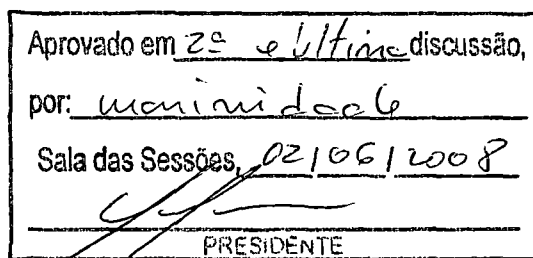 Aprovado em 2ª e última discussão,
por: unanimidade
Sala das Sessões, 02/06/2008
PRESIDENTE